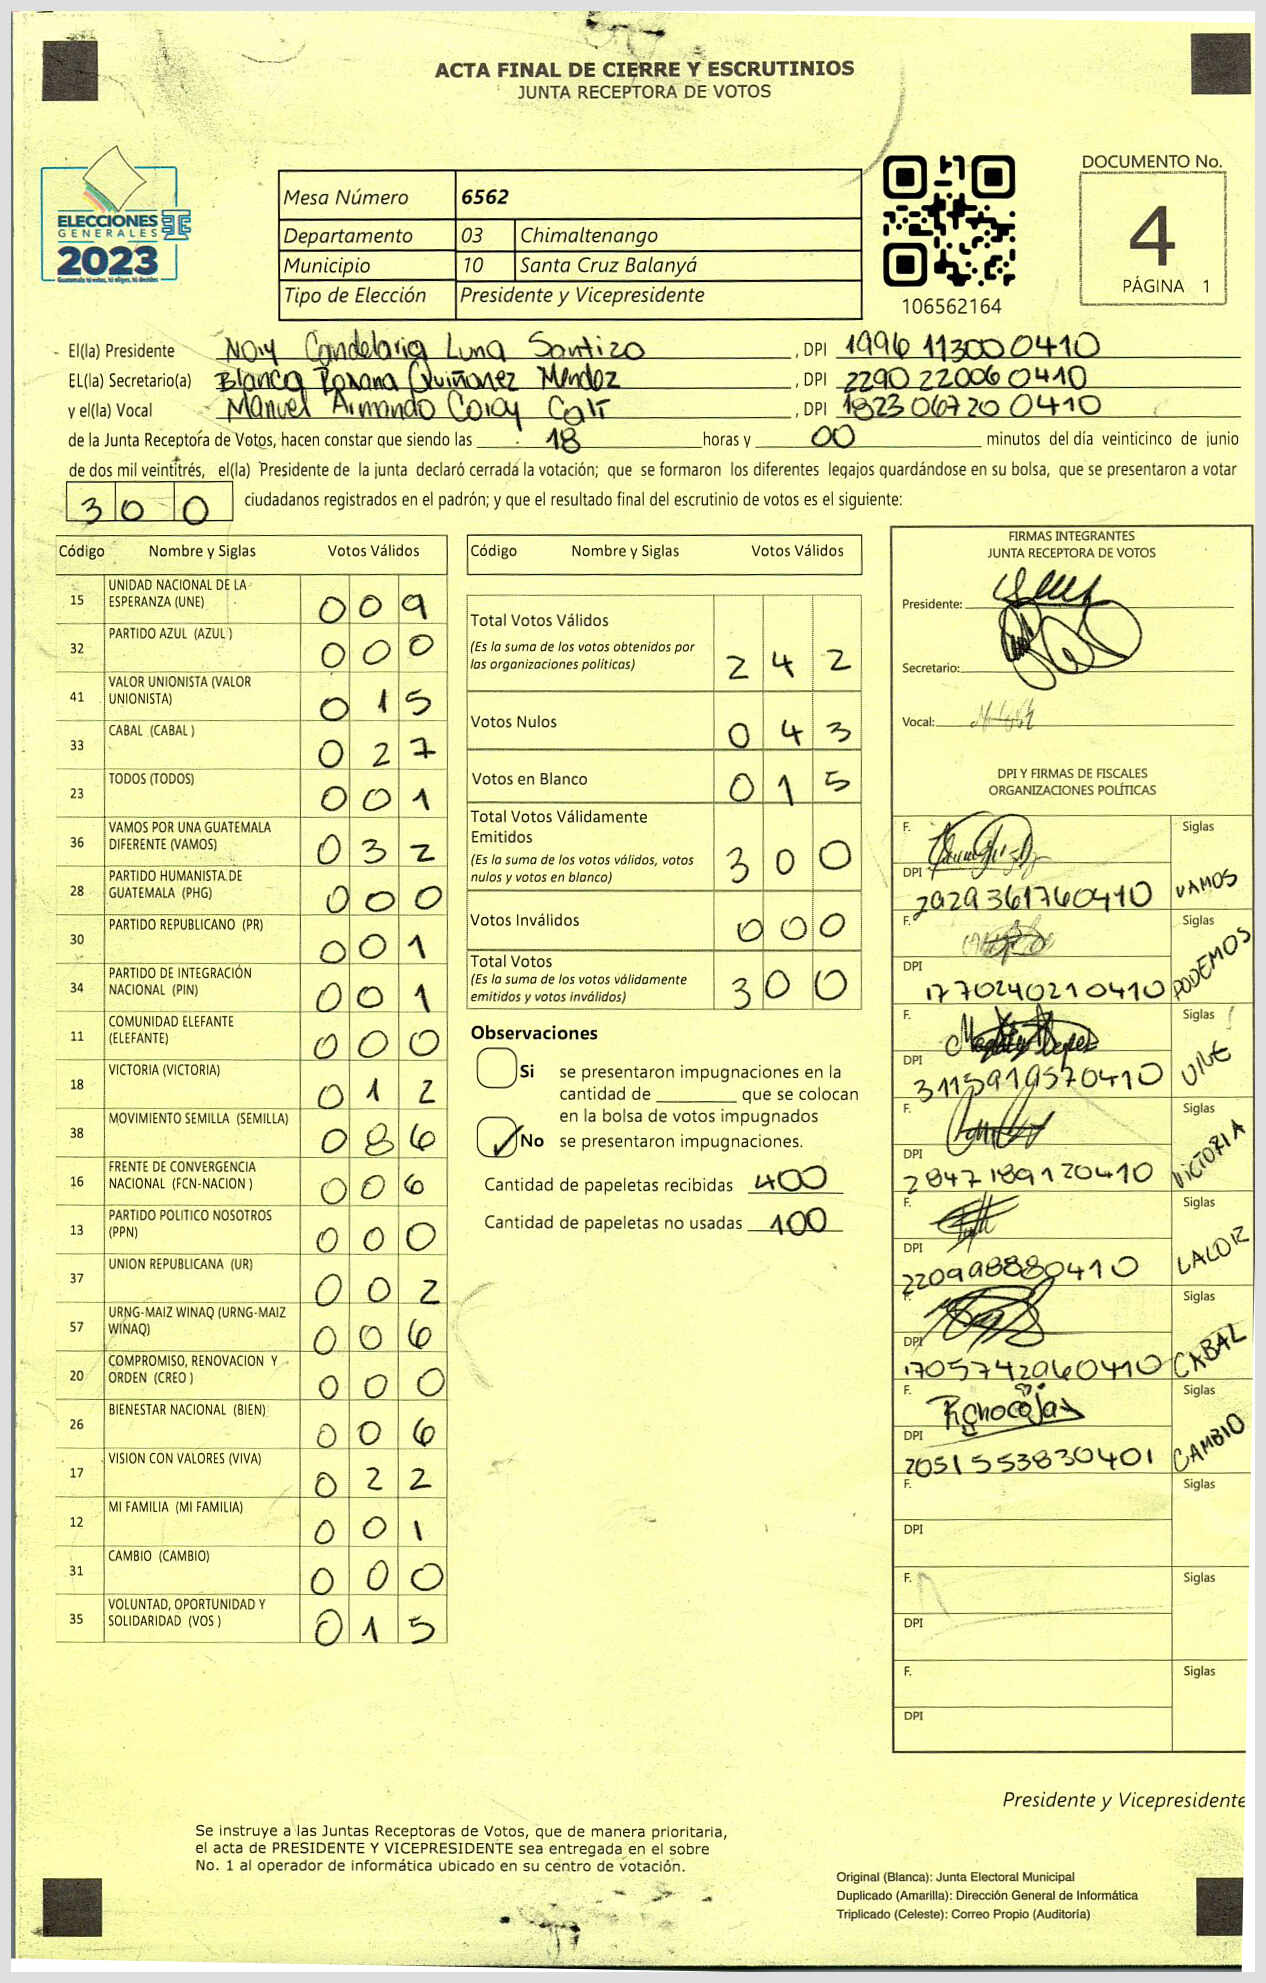 ACTA FINAL DE CIERRE Y ESCRUTINIOS
JUNTA RECEPTORA DE VOTOS
ELECCIONES
GENERALES
2023
Mesa Número 6562
Departamento 03 Chimaltenango
Municipio 10 Santa Cruz Balanyá
Tipo de Elección Presidente y Vicepresidente
106562164
DOCUMENTO No.
4
PÁGINA 1
El(la) Presidente Candelaria Luna Santizo , DPI 1996 11300 0410
EL(la) Secretario(a) Blanca Roxana Quiñonez Mendez , DPI 2290 22006 0410
y el(la) Vocal Manuel Armando , DPI 1823 06720 0410
de la Junta Receptora de Votos, hacen constar que siendo las 18 horas y 00 minutos del día veinticinco de junio
de dos mil veintitrés, el(la) Presidente de la junta declaró cerrada la votación; que se formaron los diferentes legajos guardándose en su bolsa, que se presentaron a votar
300 ciudadanos registrados en el padrón; y que el resultado final del escrutinio de votos es el siguiente:
Código Nombre y Siglas Votos Válidos
15 UNIDAD NACIONAL DE LA ESPERANZA (UNE) 009
32 PARTIDO AZUL (AZUL ) 000
41 VALOR UNIONISTA (VALOR UNIONISTA) 015
33 CABAL (CABAL ) 027
23 TODOS (TODOS) 001
36 VAMOS POR UNA GUATEMALA DIFERENTE (VAMOS) 032
28 PARTIDO HUMANISTA DE GUATEMALA (PHG) 000
30 PARTIDO REPUBLICANO (PR) 001
34 PARTIDO DE INTEGRACIÓN NACIONAL (PIN) 001
11 COMUNIDAD ELEFANTE (ELEFANTE) 000
18 VICTORIA (VICTORIA) 012
38 MOVIMIENTO SEMILLA (SEMILLA) 086
16 FRENTE DE CONVERGENCIA NACIONAL (FCN-NACION ) 006
13 PARTIDO POLITICO NOSOTROS (PPN) 000
37 UNION REPUBLICANA (UR) 002
57 URNG-MAIZ WINAQ (URNG-MAIZ WINAQ) 006
20 COMPROMISO, RENOVACION Y ORDEN (CREO ) 000
26 BIENESTAR NACIONAL (BIEN) 006
17 VISION CON VALORES (VIVA) 022
12 MI FAMILIA (MI FAMILIA) 001
31 CAMBIO (CAMBIO) 000
35 VOLUNTAD, OPORTUNIDAD Y SOLIDARIDAD (VOS ) 015
Código Nombre y Siglas Votos Válidos
Total Votos Válidos 242
(Es la suma de los votos obtenidos por
las organizaciones políticas)
Votos Nulos 043
Votos en Blanco 015
Total Votos Válidamente
Emitidos 300
(Es la suma de los votos válidos, votos
nulos y votos en blanco)
Votos Inválidos 000
Total Votos 300
(Es la suma de los votos válidamente
emitidos y votos inválidos)
Observaciones
Si se presentaron impugnaciones en la
cantidad de ________ que se colocan
en la bolsa de votos impugnados
No se presentaron impugnaciones.
Cantidad de papeletas recibidas 400
Cantidad de papeletas no usadas 100
FIRMAS INTEGRANTES
JUNTA RECEPTORA DE VOTOS
Presidente:
Secretario:
Vocal:
DPI Y FIRMAS DE FISCALES
ORGANIZACIONES POLÍTICAS
F. Siglas
DPI 2929361760410 VAMOS
F. Siglas
DPI 1770240210410 PODEMOS
F. Siglas
DPI 3115919570410 UNE
F. Siglas
DPI 2847189120410 VICTORIA
F. Siglas
DPI 220998880410
F. Siglas
DPI 1705742060410 CABAL
F. Siglas
DPI 2051553830401 CAMBIO
F. Siglas
DPI
F. Siglas
DPI
F. Siglas
DPI
Presidente y Vicepresidente
Se instruye a las Juntas Receptoras de Votos, que de manera prioritaria,
el acta de PRESIDENTE Y VICEPRESIDENTE sea entregada en el sobre
No. 1 al operador de informática ubicado en su centro de votación.
Original (Blanca): Junta Electoral Municipal
Duplicado (Amarilla): Dirección General de Informática
Triplicado (Celeste): Correo Propio (Auditoría)